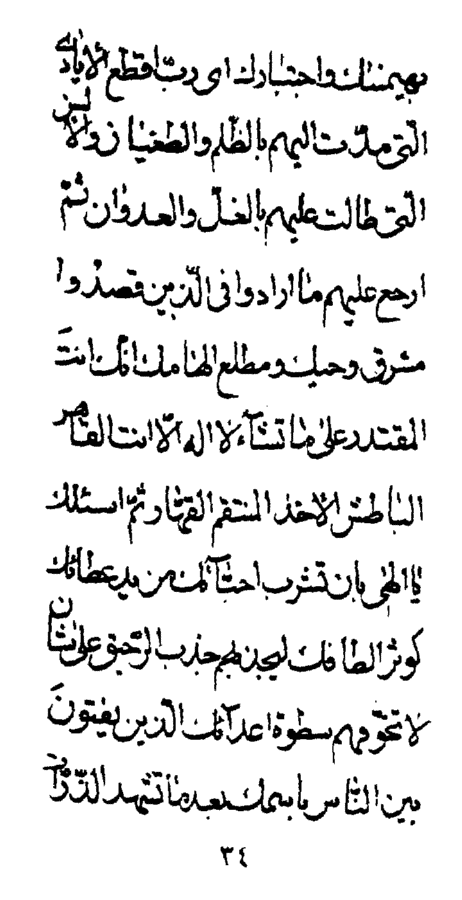 بهيمنتك واجتبارك اى ربّ اقطع الأيادى
الّتى مدّت اليهم بالظّلم والطّغيان والألسن
الّتى طالت عليهم بالغلّ والعدوان ثمّ
ارجع عليهم ما ارادوا فى الّذين قصدوا
مشرق وحيك ومطلع الهامك انّك انت
المقتدر على ما تشآء لا اله الّا انت القاهر
الباطش الآخذ المنتقم القهّار ثمّ اسئلك
يا الهى بان تشرب احبّائك من يد عطائك
كوثر الطافك ليجذبهم جذب الرّحيق على شأن
لا تخوّفهم سطوة اعدآئك الّذين يفتون
بين النّاس باسمك بعد ما تشهد الذّرّات
٣٤